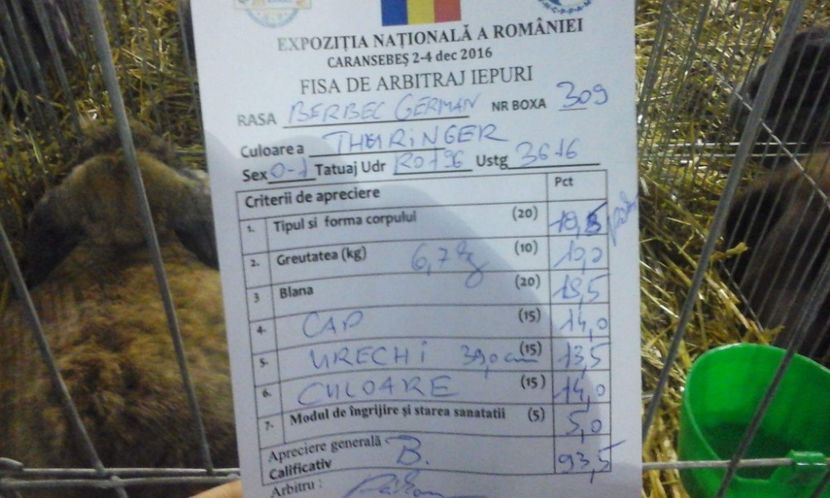 EXPOZIȚIA NAȚIONALĂ A ROMÂNIEI
CARANSEBEȘ 2-4 dec 2016
FISA DE ARBITRAJ IEPURI
RASA BERBEC GERMAN NR BOXA 309
Culoarea THURINGER
Sex 0-1 Tatuaj Udr RO196 Ustg 3616
Criterii de apreciere Pct
1. Tipul si forma corpului (20) 18,5
2. Greutatea (kg) 6,7 kg (10) 10,0
3 Blana (20) 18,5
4. CAP (15) 14,0
5. URECHI 39,0 cm (15) 13,5
6. CULOARE (15) 14,0
7. Modul de îngrijire și starea sanatatii (5) 5,0
Apreciere generală
Calificativ B. 93,5
Arbitru :